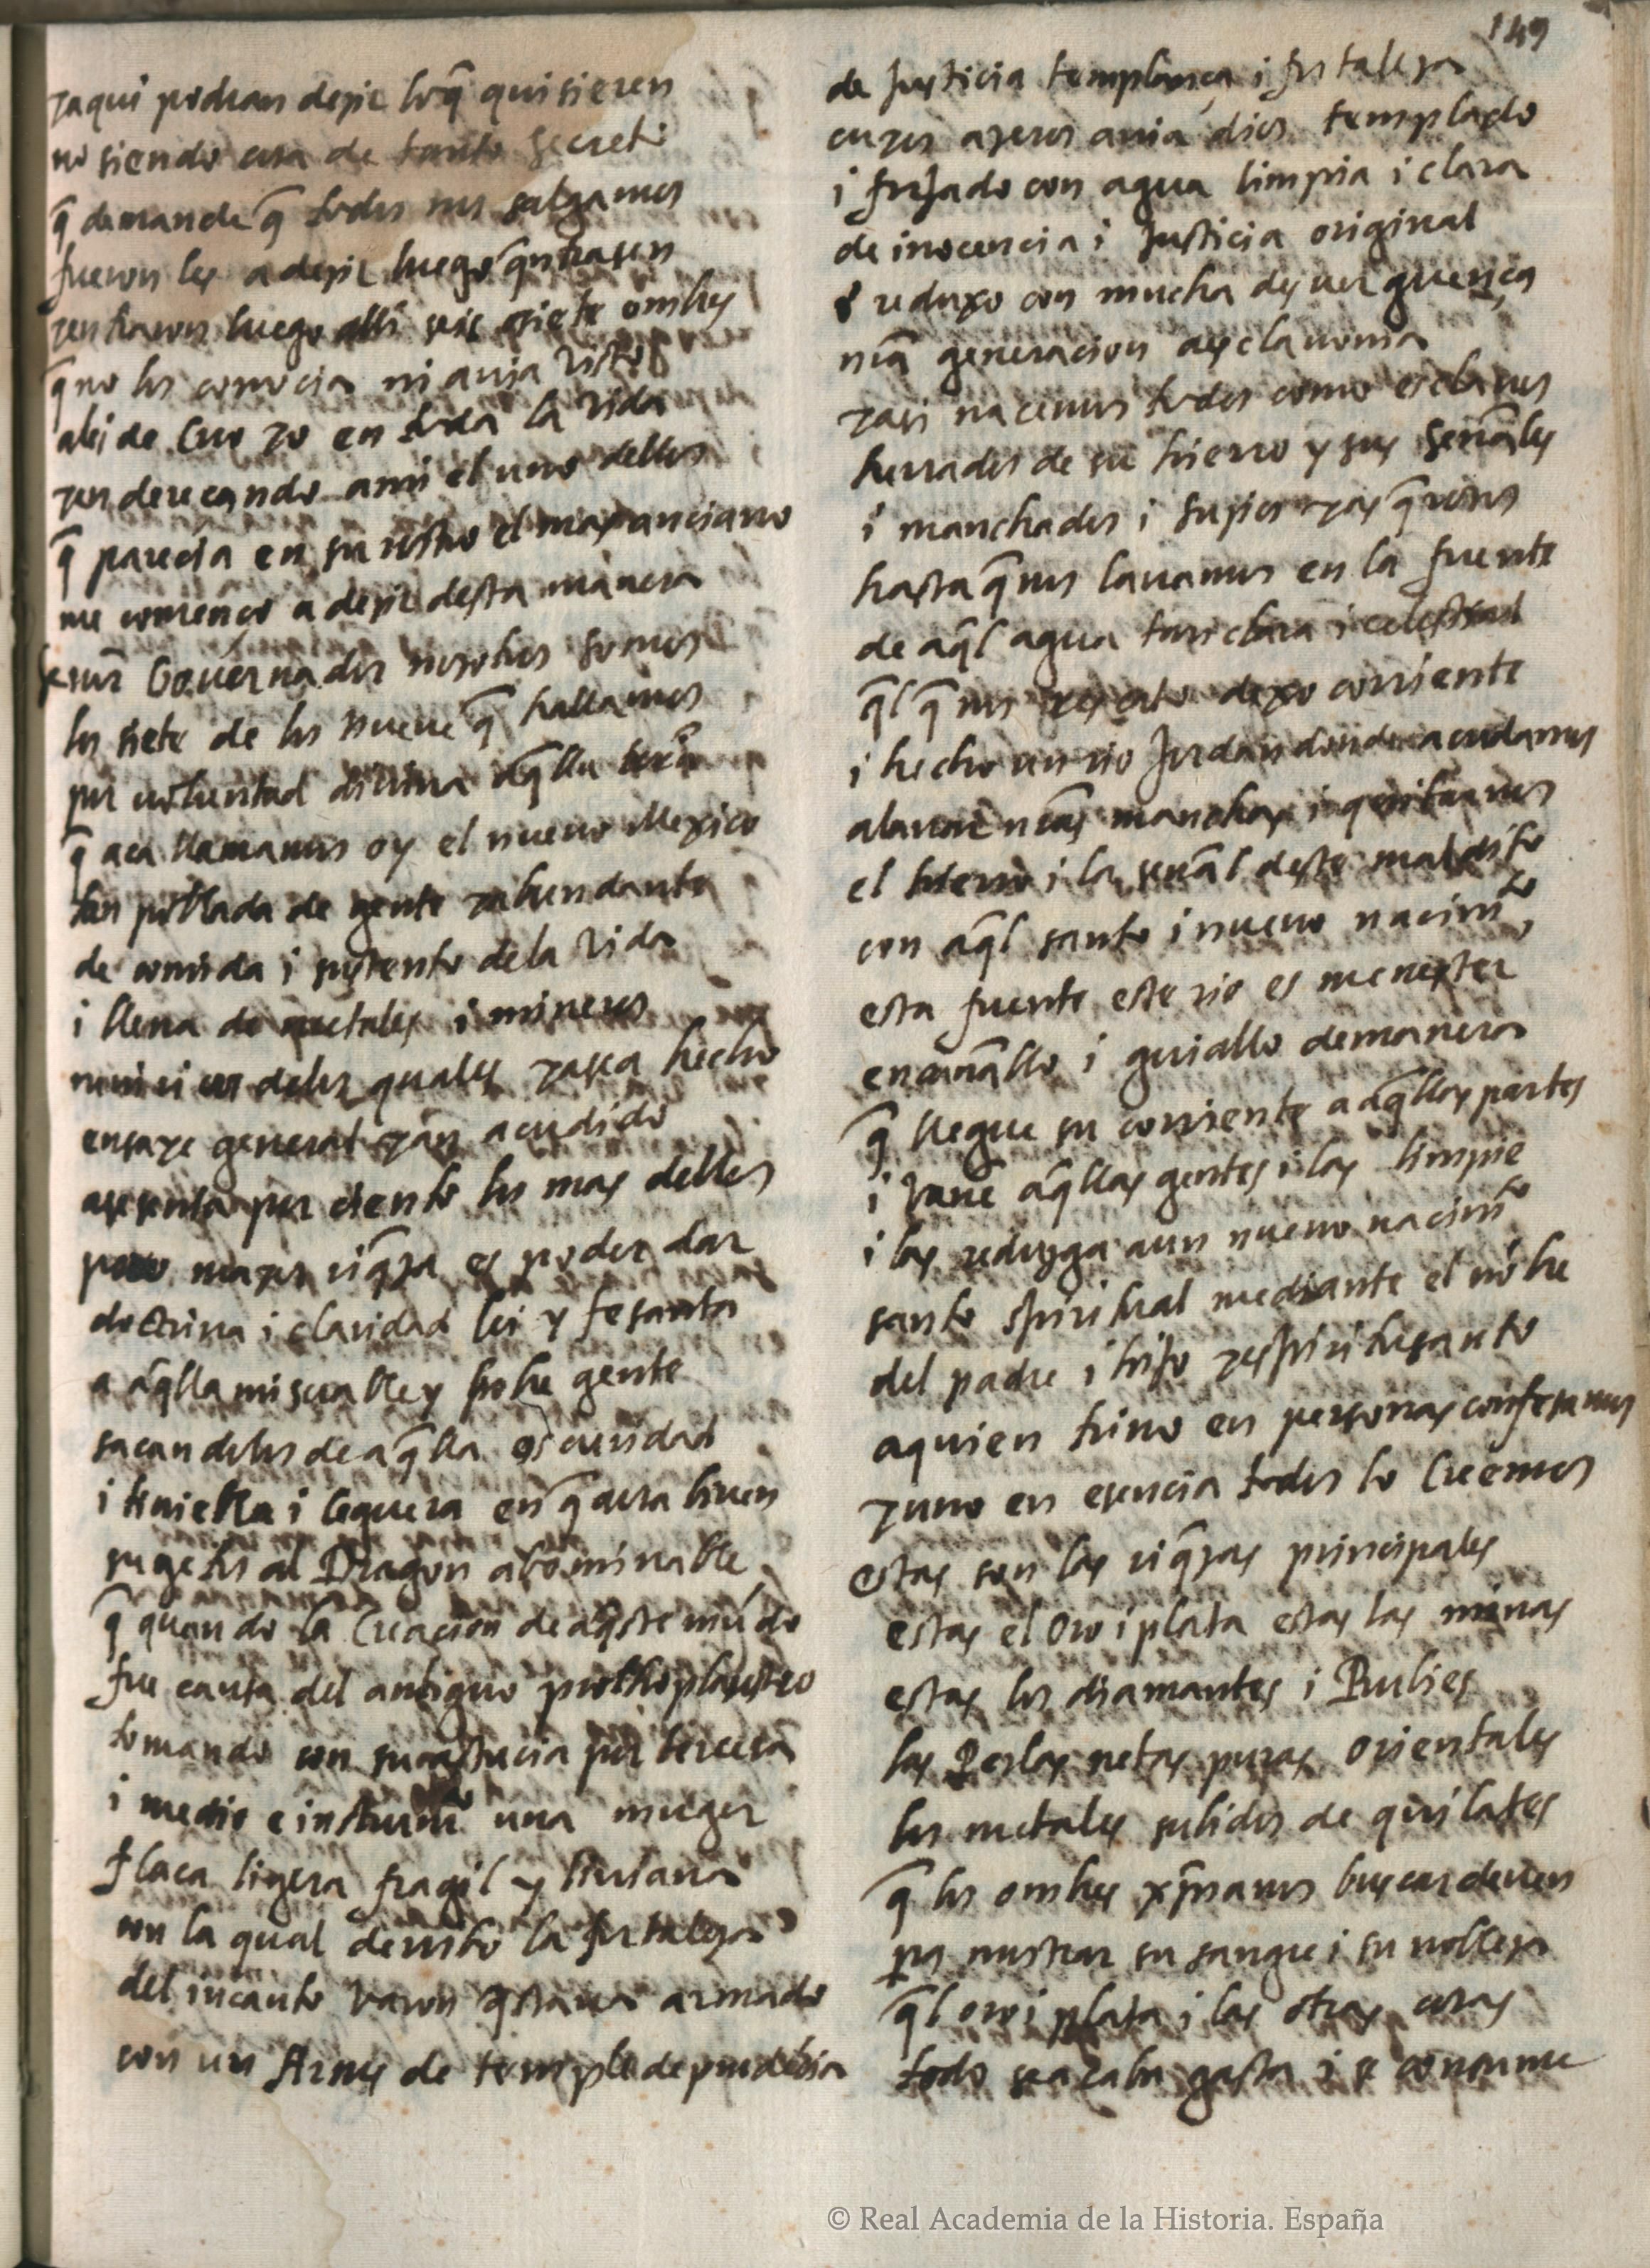 149
yaqui podran dezir loq̃ quisieren
no siendo cosa de tanto secreto
q̃ demande q̃ todos nos salgamos
fueron les a dezir luego q̃ntrasen
yentraron luego alli seis osiete ombres
q̃ no los conocia ni auia visto
alli de Cuo yo en toda la vida
yenderecando ami el uno dellos
q̃ parecia en su rostro el mas anciano
me començo a dezir desta manera
señor Gouernador nosotros somos
los siete de los nueue q̃ hallamos
por voluntad diuina aq̃lla tierra
q̃ aca llamamos oy el nueuo Mexico
tan poblada de gente yabundante
de comida i sustento de la vida
i llena de metales i mineros
delos quales yasea hecho
ensaye general yan acudido
asesenta por ciento los mas dellos
pero mayor riq̃za es poder dar
doctrina i claridad lei y fe santa
a aq̃lla miserable y pobre gente
sacandolos de aq̃lla oscuridad
i tiniebla i ceguera en q̃ aora biuen
sugetos al Dragon abominable
q̃ quando la Creacion de aq̃ste mũdo
fue causa del antiguo prothoplausteo
tomando con su astucia por tercera
i medio e instrumto una muger
flaca ligera fragil y liuiana
con la qual derribo la fortaleza
del incauto varon q̃staua armado
con un Arnes de temple de prudẽcia
de Justicia templança i fortaleza
cuyos azeros auia dios templado
i forjado con agua limpia i clara
de inocencia i Justicia original
i reduxo con mucha desuerguença
nr̃a generacion aesclauonia
yasi nacemos todos como esclauos
herrados de su hierro y sus señales
i manchados i suzios yasq̃rosos
hasta q̃ nos lauamos en la fuente
de aq̃l agua tan clara i celestial
q̃l q̃ nos rescato dexo corriente
i hecho un rio Jordan donde acudamos
alauar nr̃as manchas i quitarnos
el hierro i la señal deste maldito
con aq̃l santo i nueuo nacimto
esta fuente este rio es menester
encanallo i guiallo demanera
q̃ llegue su corriente a aq̃llas partes
i vañe aq̃llas gentes i las limpie
i las reduzga aun nueuo nacimto
santo spiritual mediante el nõbre
del padre i hijo yespiritusanto
aquien trino en personas confesamos
yuno en esencia todos lo Creemos
estas son las riq̃zas principales
estas el Oro i plata estas las minas
estas los diamantes i Rubies
las Perlas netas puras Orientales
los metales subidos de quilates
q̃ los ombres xp̃ianos buscar deuen
pa mostrar su sangre i su nobleza
q̃l oro i plata i las otras cosas
todo se acaba gasta i se consume
© Real Academia de la Historia. España